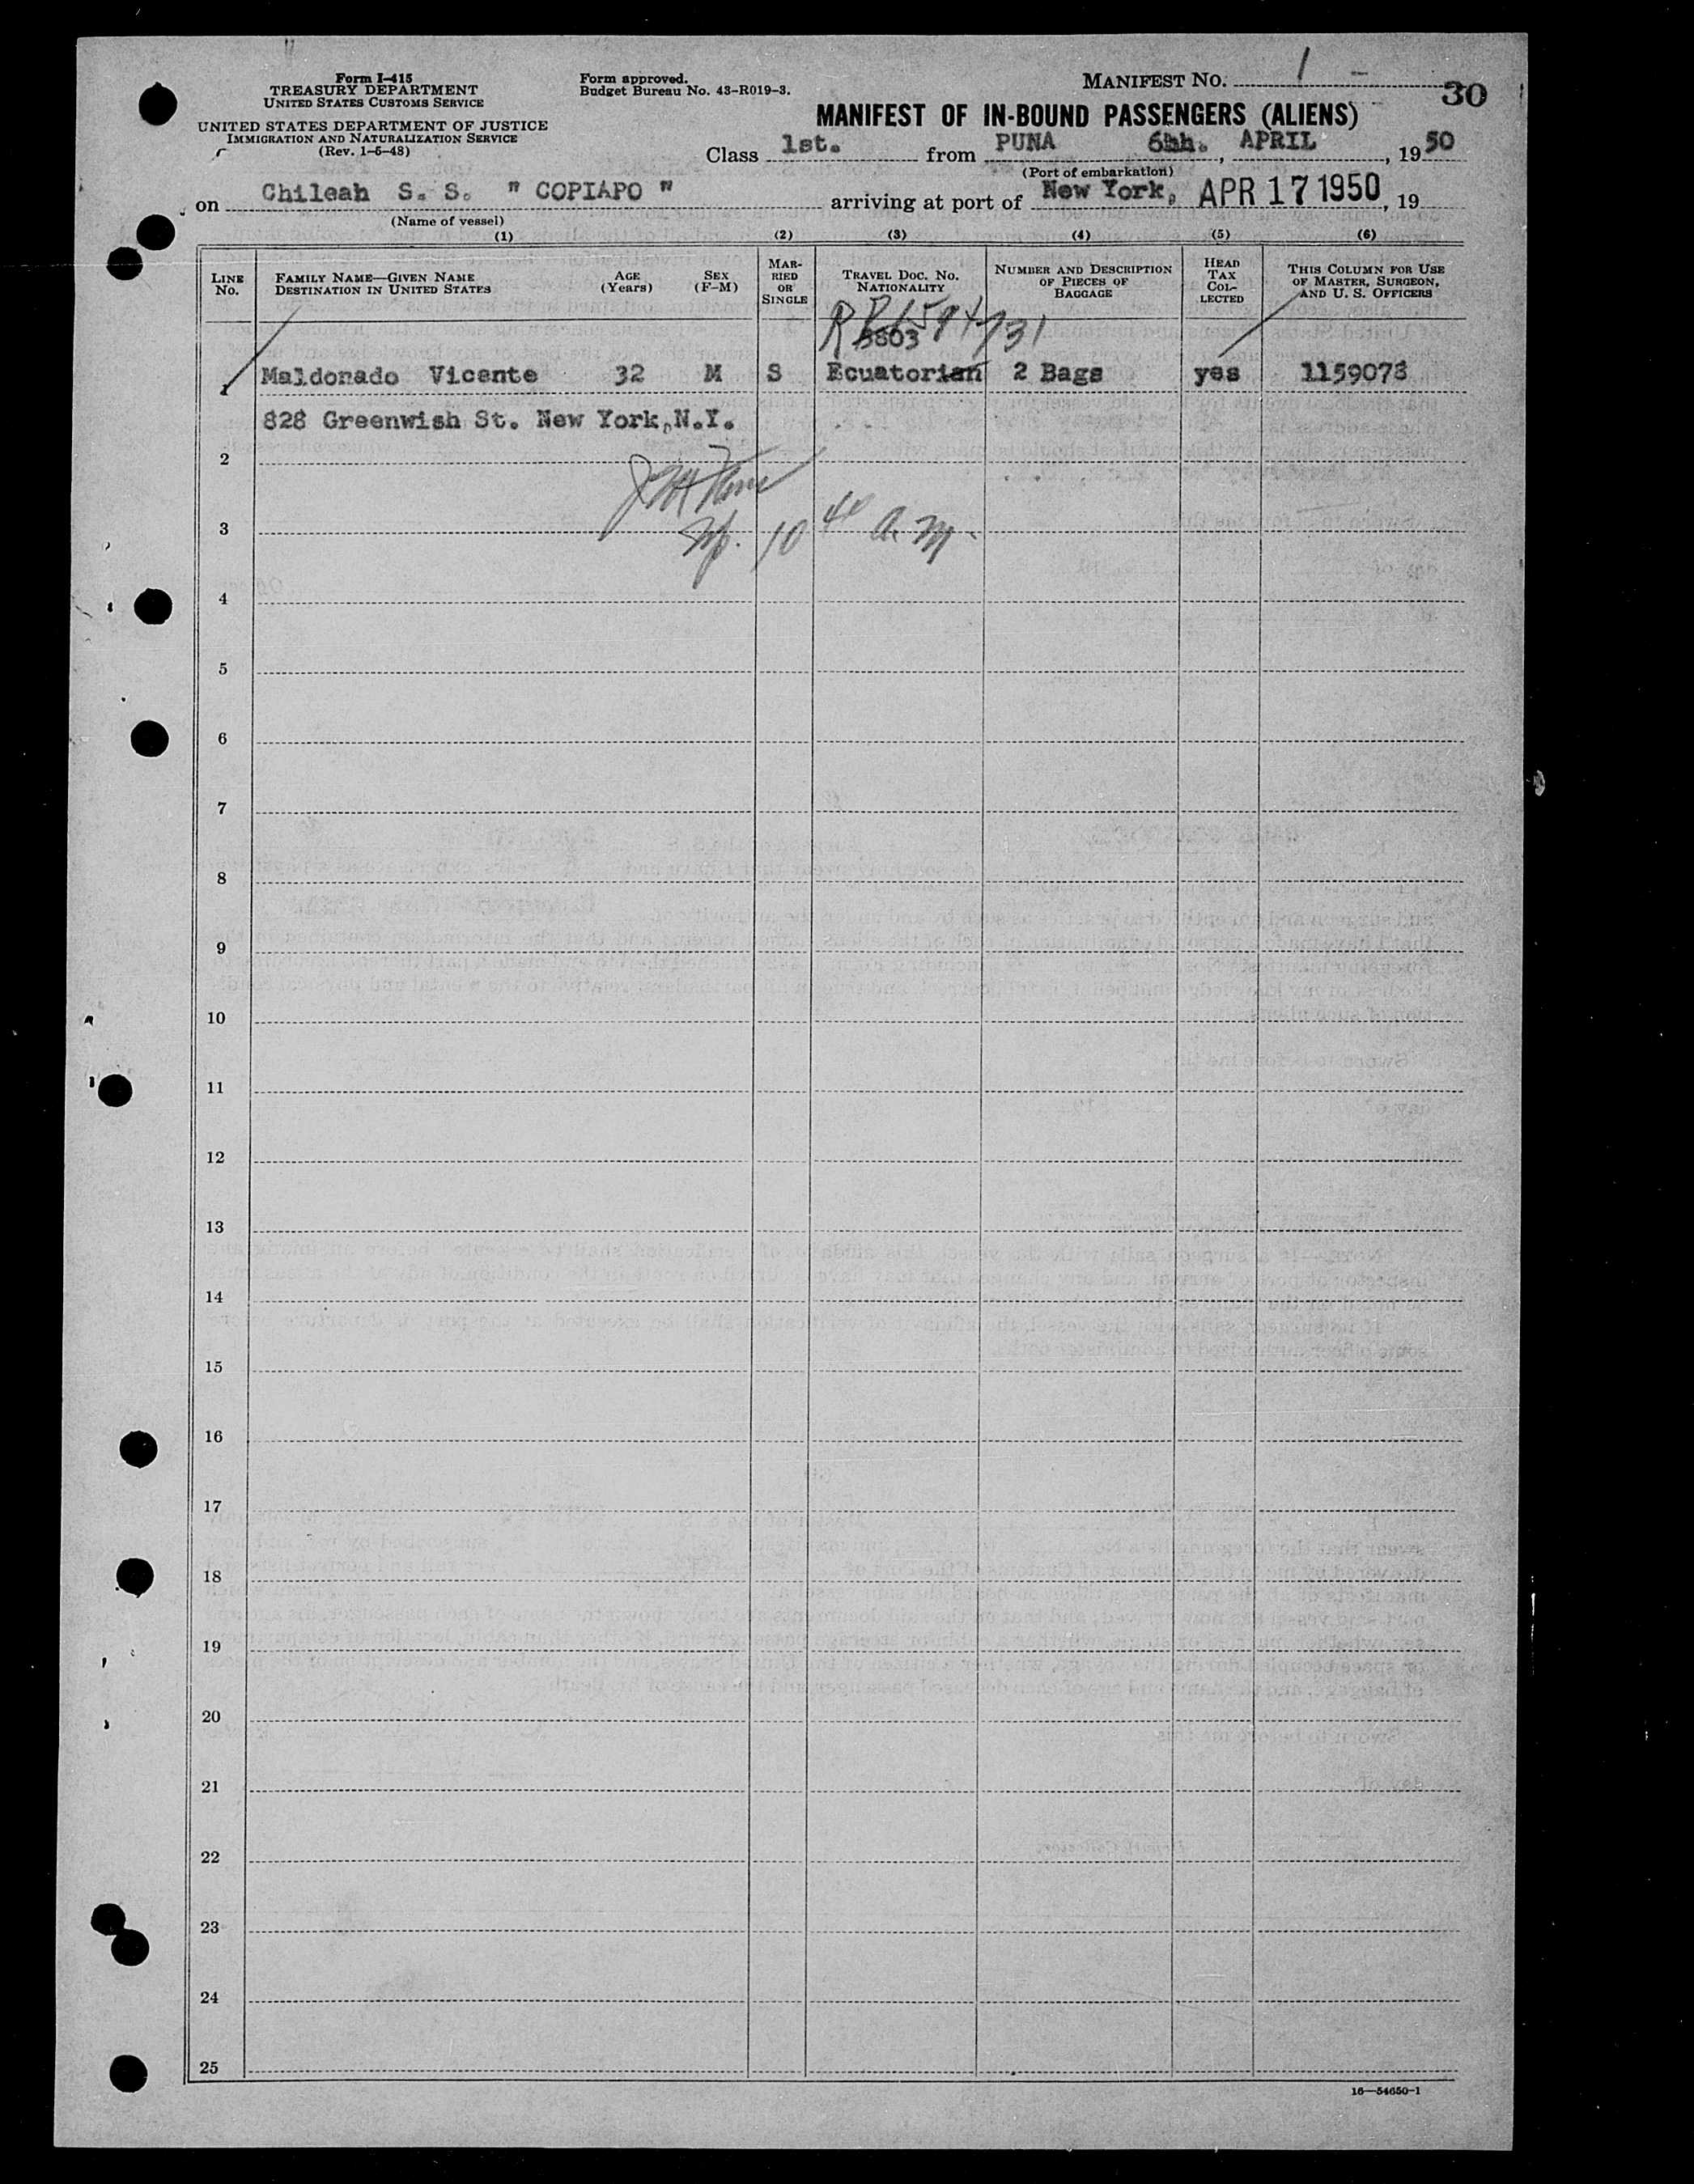 Form I-415
TREASURY DEPARTMENT
UNITED STATES CUSTOMS SERVICE
UNITED STATES DEPARTMENT OF JUSTICE
IMMIGRATION AND NATURALIZATION SERVICE
(Rev. 1-5-48)
Form approved.
Budget Bureau No. 43-R019-3.
MANIFEST NO. 1 -
30
MANIFEST OF IN-BOUND PASSENGERS (ALIENS)
Class 1st. from PUNA 6hh. , APRIL , 19 50
(Port of embarkation)
on Chileah S. S. " COPIAPO " arriving at port of New York, APR 17 1950, 19
(Name of vessel)
(1) (2) (3) (4) (5) (6)
LINE No.
FAMILY NAME—GIVEN NAME
DESTINATION IN UNITED STATES
AGE (Years)
SEX (F-M)
MARRIED OR SINGLE
TRAVEL DOC. NO. NATIONALITY
NUMBER AND DESCRIPTION OF PIECES OF BAGGAGE
HEAD TAX COLLECTED
THIS COLUMN FOR USE OF MASTER, SURGEON, AND U. S. OFFICERS
3803
1 Maldonado Vicente 32 M S Ecuatorian 2 Bags yes 1159073
828 Greenwish St. New York,N.Y.
2
3 10 40 a.m.
4
5
6
7
8
9
10
11
12
13
14
15
16
17
18
19
20
21
22
23
24
25
16—54650-1